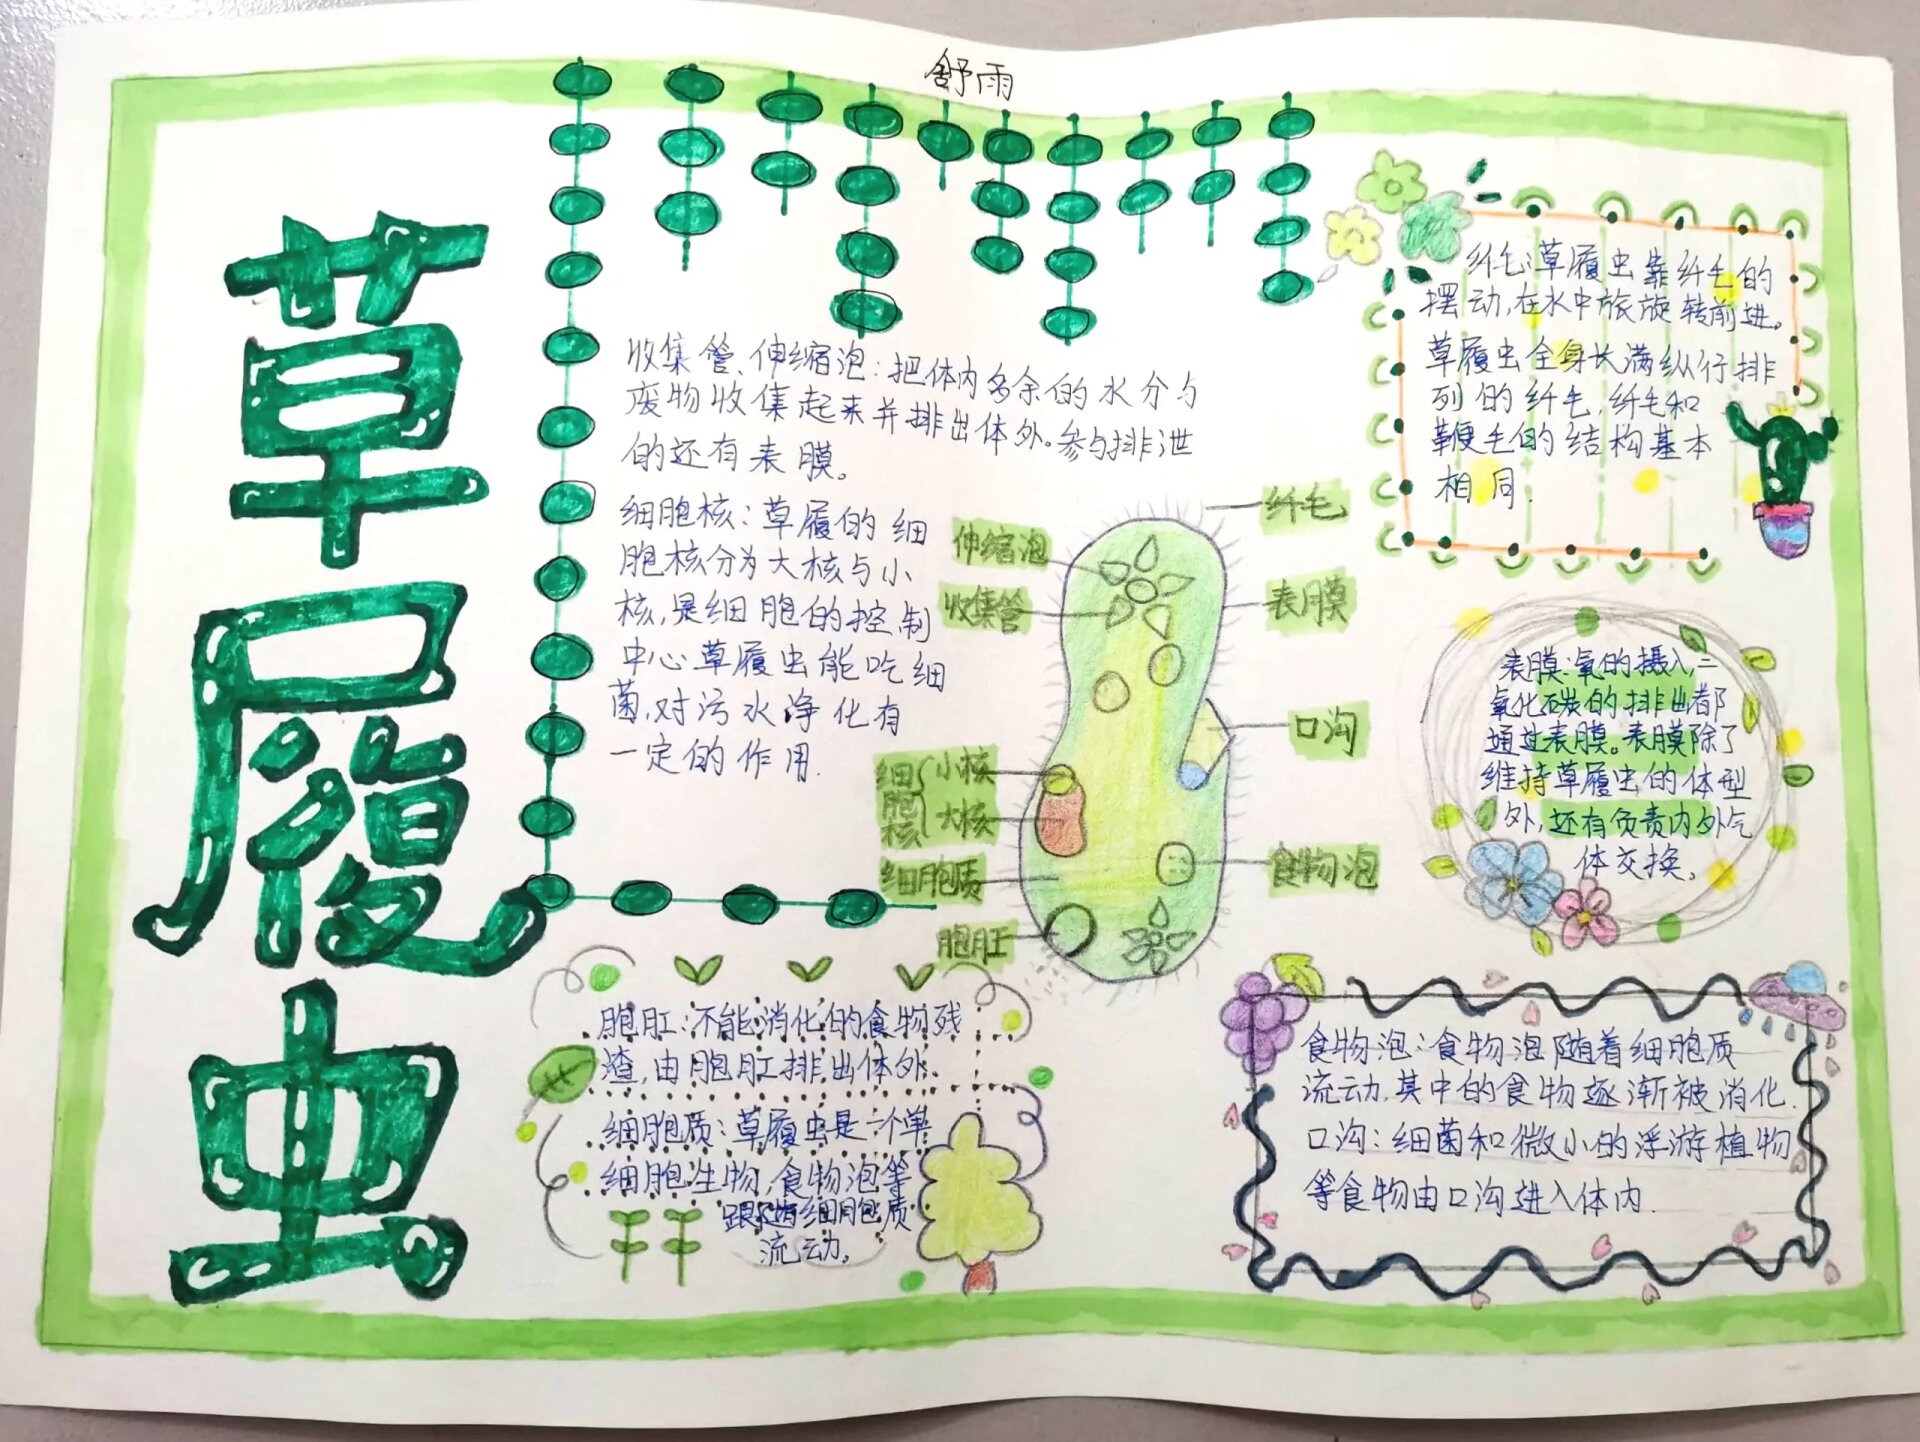 舒雨
草履虫
收集管、伸缩泡：把体内多余的水分与
废物收集起来并排出体外。参与排泄
的还有表膜。
细胞核：草履的细
胞核分为大核与小
核，是细胞的控制
中心草履虫能吃细
菌，对污水净化有
一定的作用.
伸缩泡
收集管
细胞核
小核
大核
细胞质
胞肛
纤毛
表膜
口沟
食物泡
纤毛：草履虫靠纤毛的
摆动，在水中旅旋转前进。
草履虫全身长满纵行排
列的纤毛，纤毛和
鞭毛的结构基本
相同.
表膜：氧的摄入，二
氧化碳的排出都
通过表膜。表膜除了
维持草履虫的体型
外，还有负责内外气
体交换。
胞肛：不能消化的食物残
渣，由胞肛排出体外.
细胞质：草履虫是一个单
细胞生物，食物泡等
跟随细胞质
流动。
食物泡：食物泡随着细胞质
流动，其中的食物逐渐被消化.
口沟：细菌和微小的浮游植物
等食物由口沟进入体内.